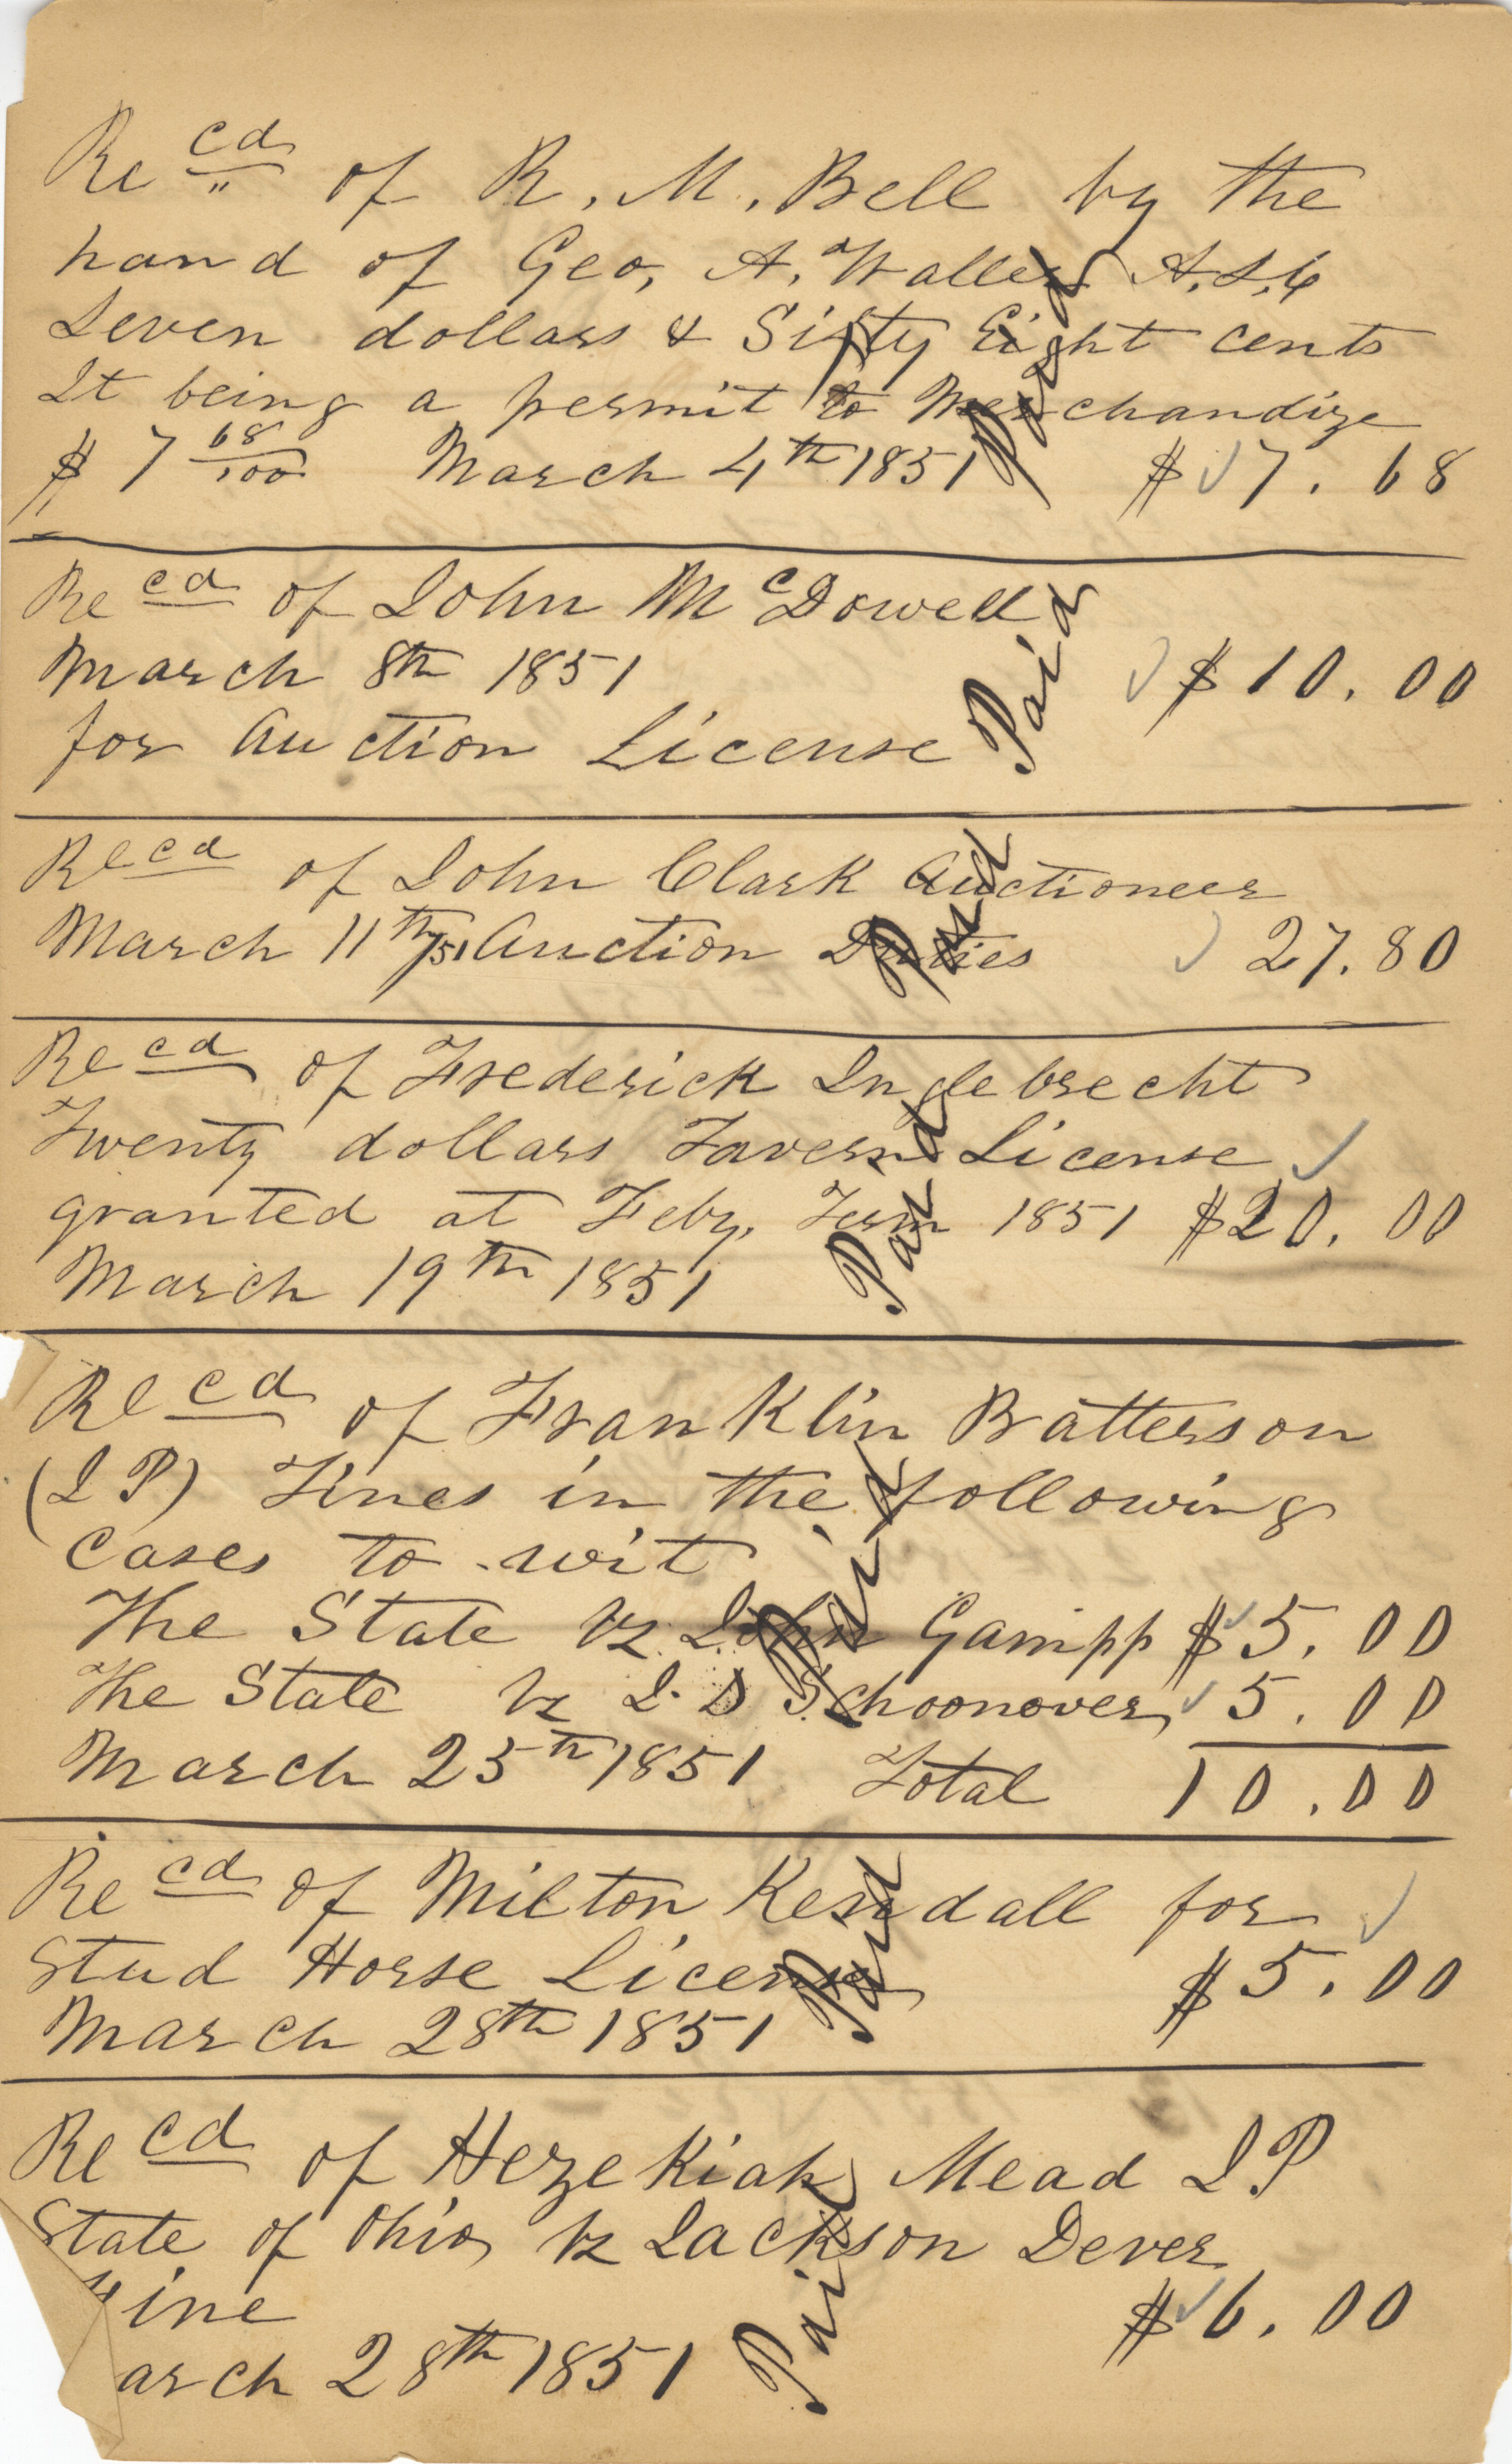 Recd of R. M. Bell by the
hand of Geo, A. Waller
Seven dollars & Sixty Eight cents
It being a permit to Merchandize
$ 7 68/100 March 4th 1851 $ 7. 68
Paid
Recd of John McDowell
March 8th 1851 $ 10. 00
for Auction License
Paid
Recd of John Clark Auctioneer
March 11th /51 Auction Duties 27. 80
Paid
Recd of Frederick Inglebrecht
Twenty dollars Tavern License
granted at Feby. Term 1851 $20. 00
March 19th 1851
Paid
Recd of Franklin Batterson
(JP) Fines in the following
Cases to wit
The State vs John Gampp $ 5. 00
The State vs J. S Schoonover, 5. 00
March 25th 1851 Total 10.00
Paid
Recd of Milton Kendall for
Stud Horse License $ 5. 00
March 28th 1851
Paid
Recd of Hezekiah Mead JP
State of Ohio vs Jackson Dever
Fine $ 6. 00
arch 28th 1851
Paid